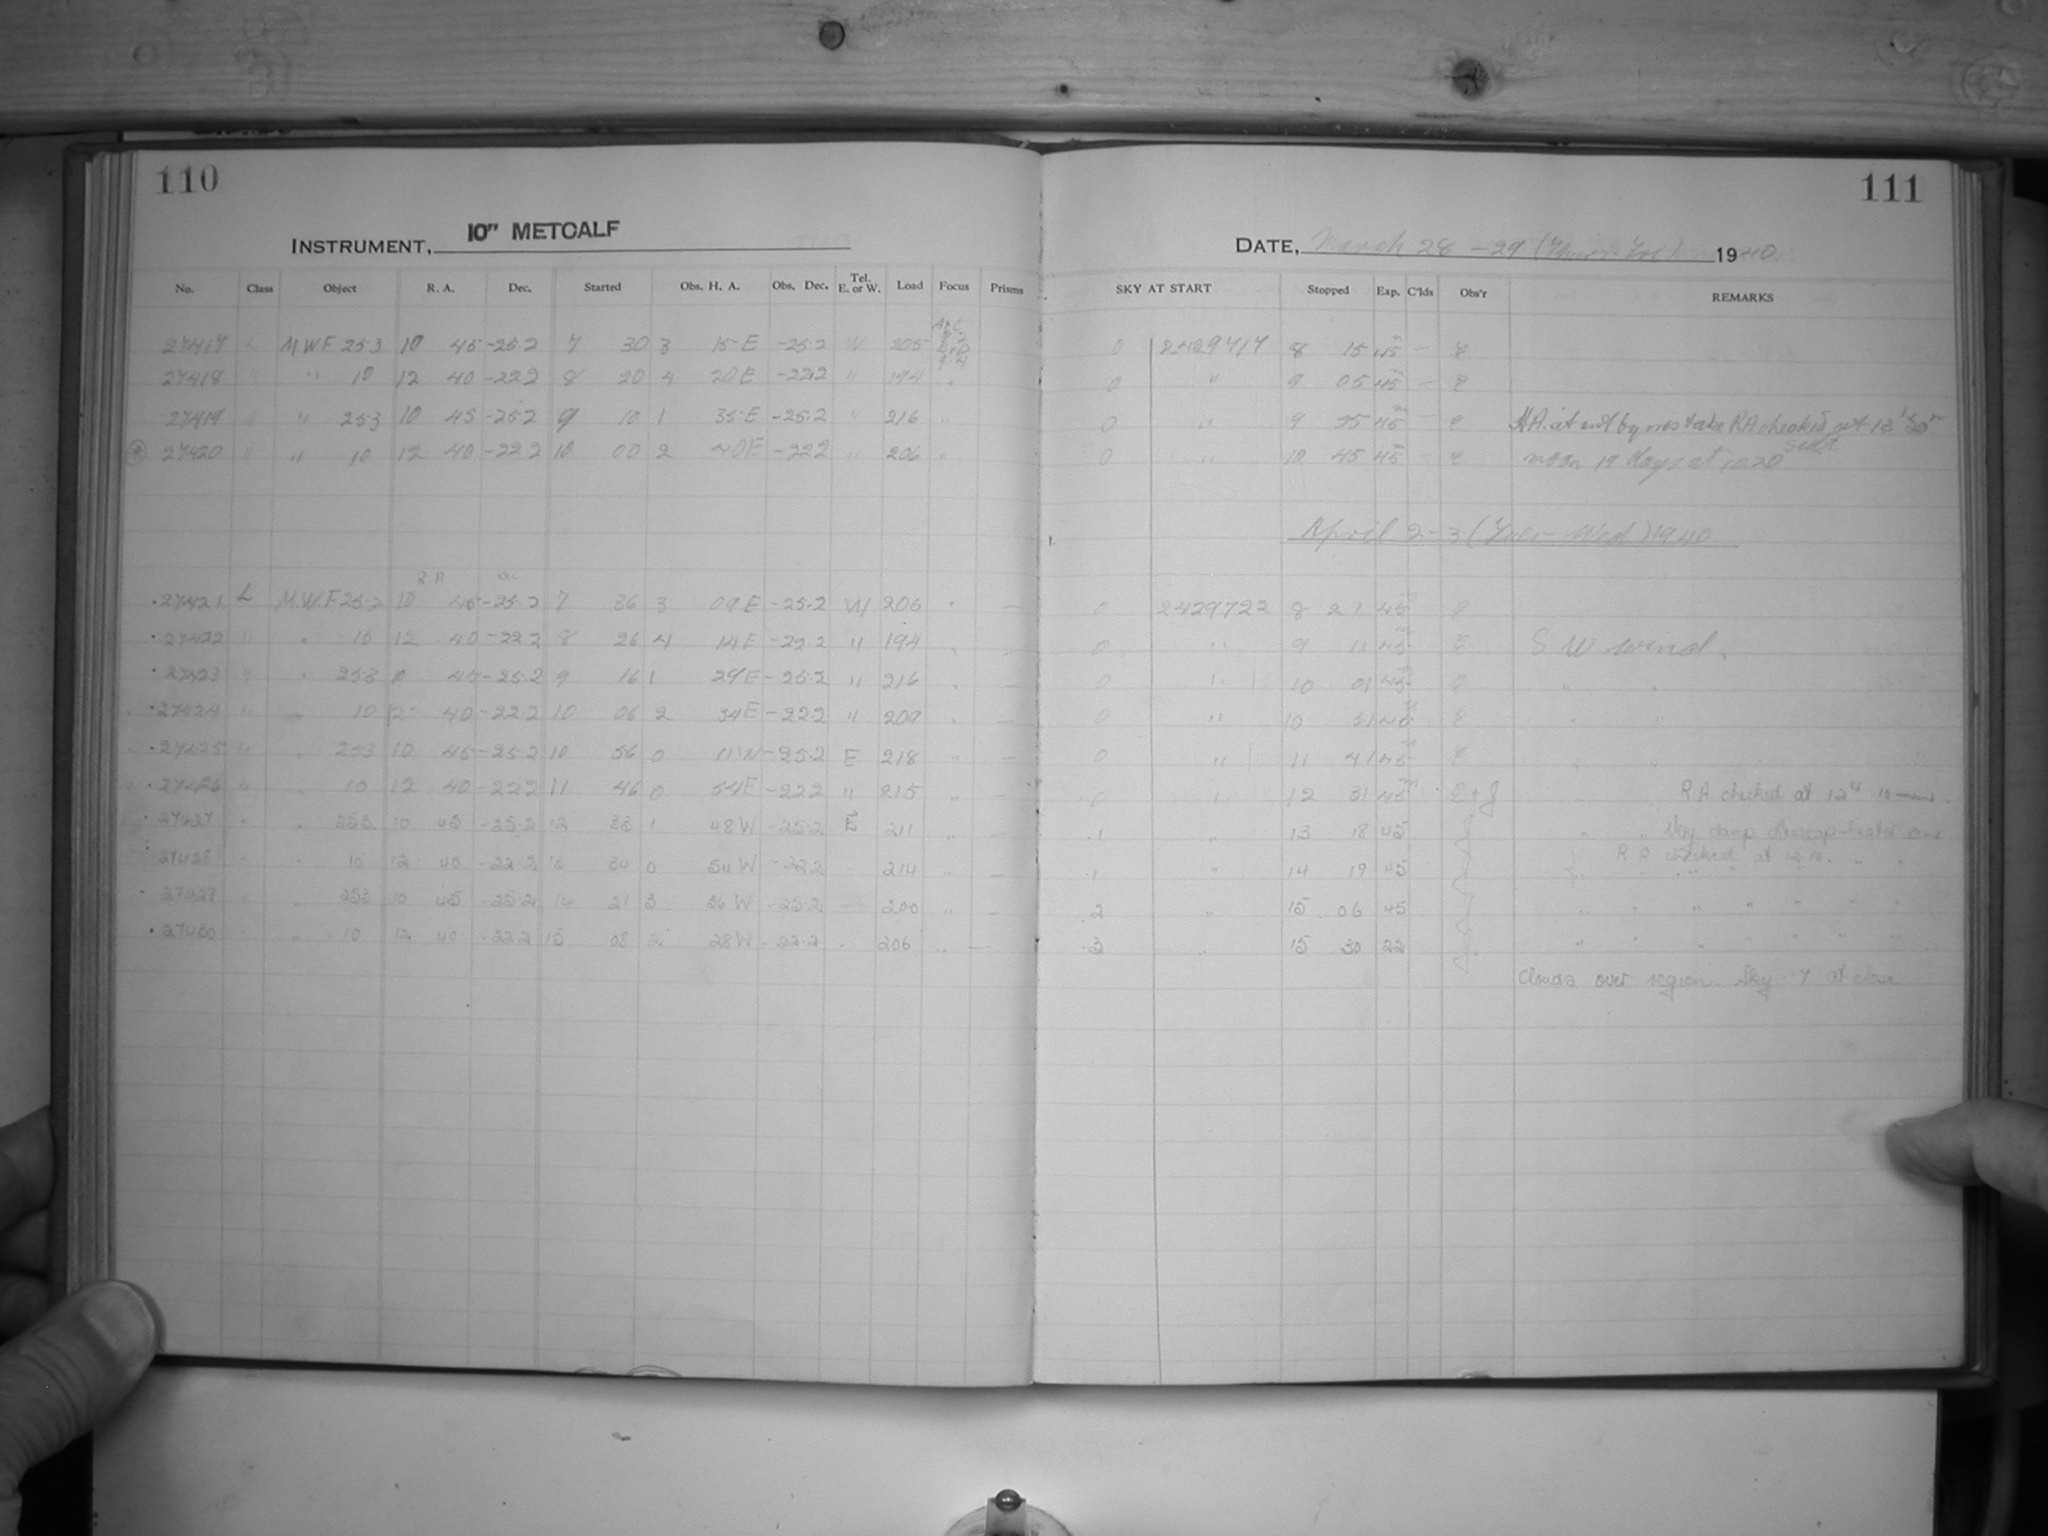 110
111
INSTRUMENT, 10" METCALF
DATE, March 28-29 (Thurs-Fri) 1940
No. Class Object R. A. Dec. Started Obs. H. A. Obs. Dec. Tel. E. or W. Load Focus Prisms SKY AT START Stopped Exp. C'lds Obs'r REMARKS
27417 L M.W.F. 253 10 45 -25.2 7 30 3 15 E -25.2 W 205 0 2429717 8 15 45 m – E
27418 " " 10 12 40 -22.2 8 20 4 20 E -22.2 " 194 " 0 " 9 05 45 m – E
27419 " " 253 10 45 -25.2 9 10 1 35 E -25.2 " 216 " 0 " 9 55 45 m – E H.A. at end by mistake R.A. checked at
27420 " " 10 12 40 -22.2 10 00 2 40 E -22.2 " 206 " 0 " 10 45 45 m – E moon 19 days at 1020
April 2-3 (Tues-Wed) 1940
R A Dec.
27421 L M.W.F 253 10 45 -25.2 7 36 3 09 E -25.2 W 206 " – 0 2429722 8 21 45 m E
27422 " " 10 12 40 -22.2 8 26 4 14 E -22.2 " 194 " – 0 " 9 11 45 m E S W wind.
27423 " " 253 10 45 -25.2 9 16 1 29 E -25.2 " 216 " – 0 " 10 01 45 m E " "
27424 " " 10 12 40 -22.2 10 06 2 34 E -22.2 " 209 " – 0 " 10 51 45 m E " "
27425 " " 253 10 45 -25.2 10 56 0 11 W -25.2 E 218 " – 0 " 11 41 45 m E " "
27426 " " 10 12 40 -22.2 11 46 0 54 E -22.2 " 215 " – 0 " 12 31 45 m E + J " R.A. checked at 12 H 10 min.
27427 " " 253 10 45 -25.2 12 33 1 48 W -25.2 E 211 " – .1 " 13 18 45 " " Sky damp
27428 " " 10 12 40 -22.2 13 34 0 54 W -22.2 214 " – .1 " 14 19 45 R A checked at
27429 " " 253 10 45 -25.2 14 21 3 36 W -25.2 200 " – .2 " 15 06 45 " " " " " " "
27430 " " 10 12 40 -22.2 15 08 2 28 W -22.2 206 " – .3 " 15 30 22 " " " " " " "
Clouds over region. Sky 7 at close